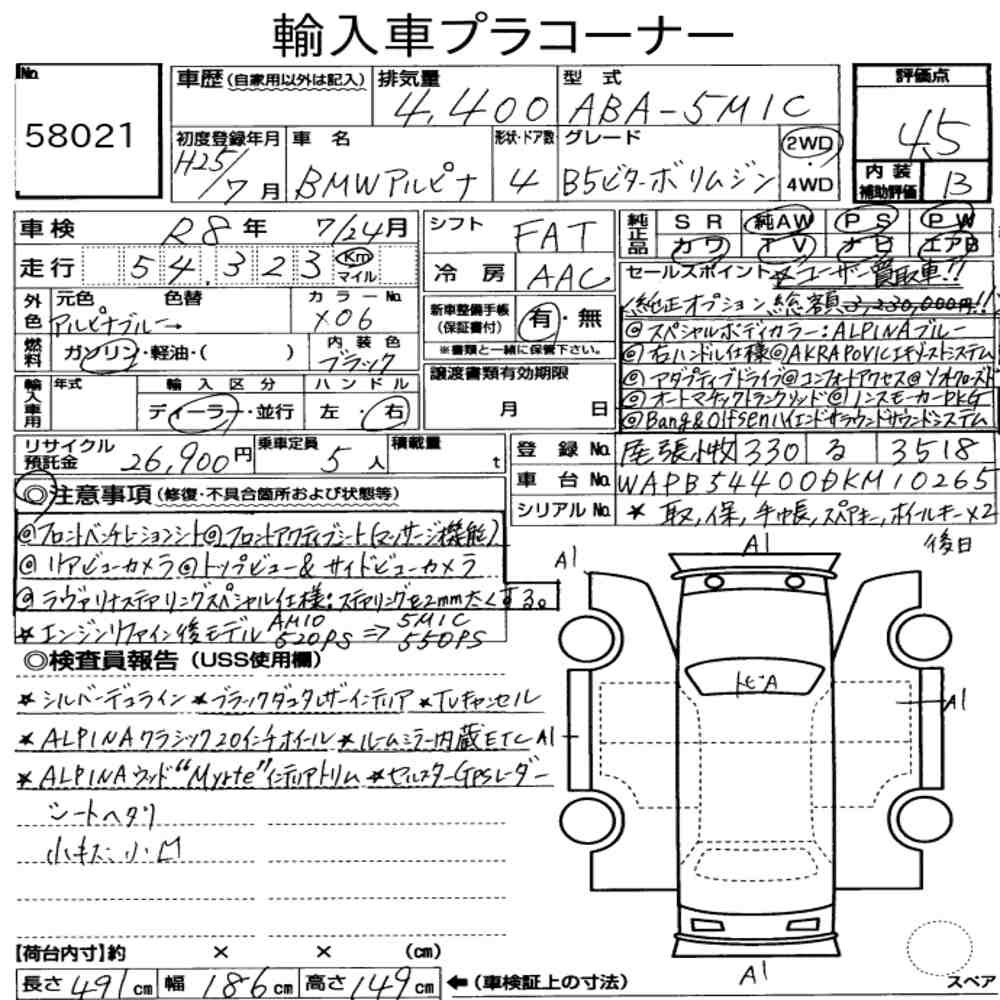 輸入車プラコーナー
No.
58021
車歴 (自家用以外は記入) 排気量 型式
4,400 ABA-5M1C
初度登録年月 車名 形状・ドア数 グレード
H25/7月 BMWアルピナ 4 B5ビターボリムジン
2WD
・
4WD
評価点
4.5
内装
補助評価 B
車検 R8年 7/24月
走行 54,323 Km
マイル
外色 元色 色替 カラーNo.
アルピナブルー→ X06
燃料 ガソリン・軽油・( ) 内装色
ブラック
輸入車用 年式 輸入区分 ハンドル
ディーラー・並行 左・右
シフト FAT
冷房 AAC
新車整備手帳
(保証書付) 有・無
※書類と一緒に保管下さい。
譲渡書類有効期限
月 日
純正品 SR 純AW PS PW
カワ TV ナビ エアB
セールスポイント ★ユーザー買取車!!
純正オプション総額3,230,000円!!
◎スペシャルボディカラー:ALPINAブルー
◎右ハンドル仕様◎AKRAPOVICエキゾーストシステム
◎アダプティブドライブ◎コンフォートアクセス◎ソフトクローズドア
◎オートマチックトランクリッド◎ノンスモーカーPKG
◎Bang&Olfsenハイエンドサラウンドサウンドシステム
リサイクル
預託金 26,900円 乗車定員 5人 積載量 t
登録No. 尾張小牧 330 る 3518
車台No. WAPB54400DKM10265
シリアルNo. ★ 取,保,手帳,スペアキー,ホイールキー×2
後日
◎注意事項 (修復・不具合箇所および状態等)
◎フロントベンチレーションシート◎フロントアクティブシート(マッサージ機能)
◎リアビューカメラ◎トップビュー&サイドビューカメラ
◎ラヴァリナステアリングスペシャル仕様:ステアリングを2mm太くする。
★エンジンリファイン後モデル AM10 520PS ⇒ 5M1C 550PS
◎検査員報告 (USS使用欄)
★シルバーデコライン ★ブラックダコタレザーインテリア ★TVキャンセル
★ALPINAクラシック20インチホイール ★ルームミラー内蔵ETC
★ALPINAウッド"Myrte"インテリアトリム ★セルスターGPSレーダー
シートヘタリ
小キズ、小凹
A1
A1
トビA
A1
A1
A1
スペア
【荷台内寸】約 × × (cm)
長さ491cm 幅186cm 高さ149cm ←(車検証上の寸法)